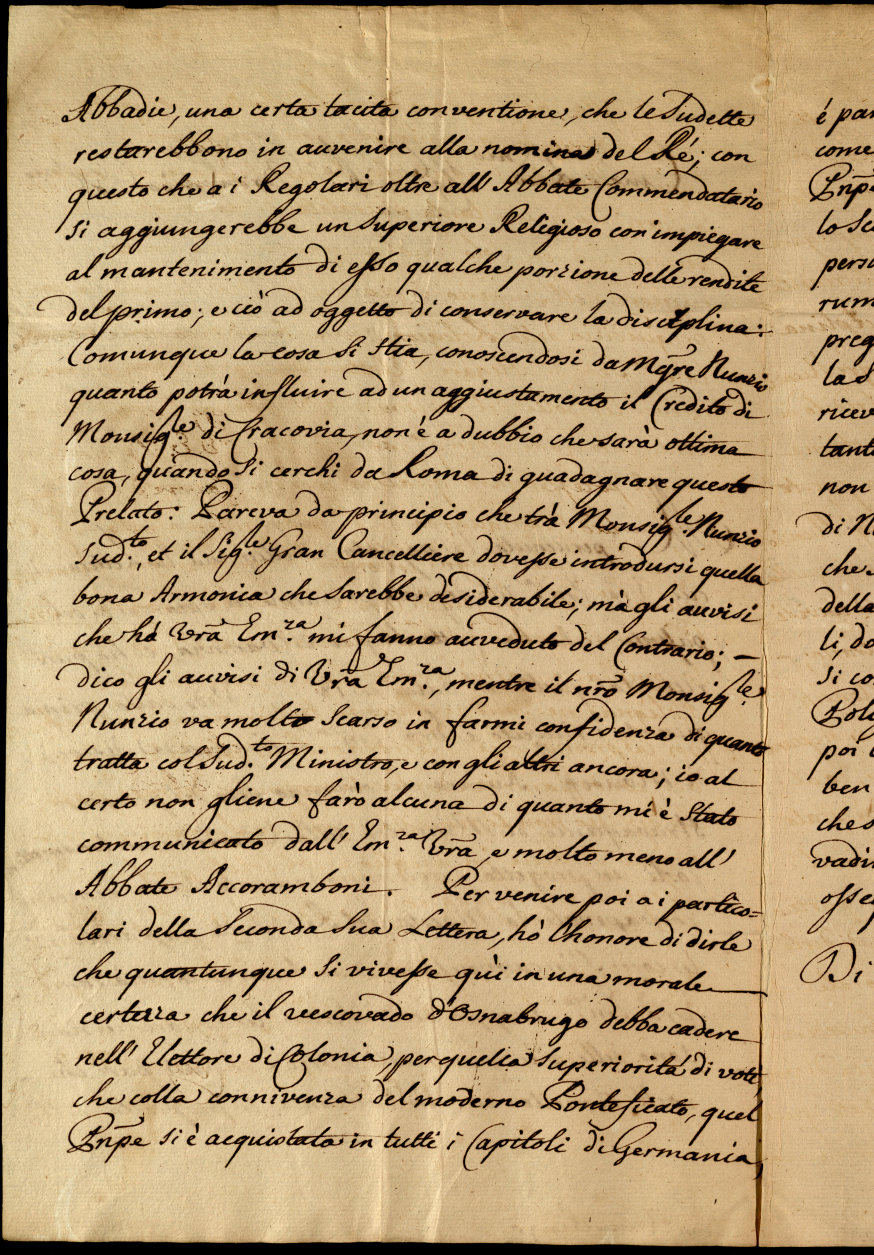 Abbadie, una certa tacita conventione, che le Sudette
restarebbono in auvenire alla nomina del Ré; con
questo che a i Regolari oltre all' Abbate Commendatario
si aggiungerebbe un Superiore Religioso con impiegare
al mantenimento di esso qualche porzione delle rendite
del primo; e ciò ad oggetto di conservare la disciplina:
Comunque la cosa si stia, conoscendosi da Mg.re Nunzio
quanto potrà influire ad un aggiustamento il Credito di
Monsig.le di Cracovia, non è a dubbio che sarà ottima
cosa, quando si cerchi da Roma di guadagnare questo
Prelato: Pareva da principio che trà Monsig.le Nunzio
Sud.to, et il Sig.le Gran Cancelliere dovesse introdursi quella
bona Armonica che sarebbe desiderabile; mà gli auvisi
che hà Vrã Em.za mi fanno auveduto del Contrario; —
dico gli auvisi di Vrã Em.za, mentre il nrõ Monsig.le
Nunzio va molto scarso in farmi confidenza di quanto
tratta col Sud.to Ministro, e con gli altri ancora; io al
certo non gliene farò alcuna di quanto mi è stato
communicato dall' Em.za Vrã, e molto meno all'
Abbate Accoramboni. Per venire poi a i partico=
lari della Seconda Sua Lettera, hò l'honore di dirle
che quantunque si vivesse quì in una morale
certezza che il vescovado d'Osnabrugo debba cadere
nell' Elettore di Colonia, per quella Superiorità di voti,
che colla connivenza del moderno Ponteficato, quel
Pnp̃e si è acquistata in tutti i Capitoli di Germania,
é par
come
Pnp̃e
lo Sc
pers
rum
preg
la S
ricev
tant
non
di N
che
della
li, do
si co
Pol
poi
ben
che s
vadi
osse
Di